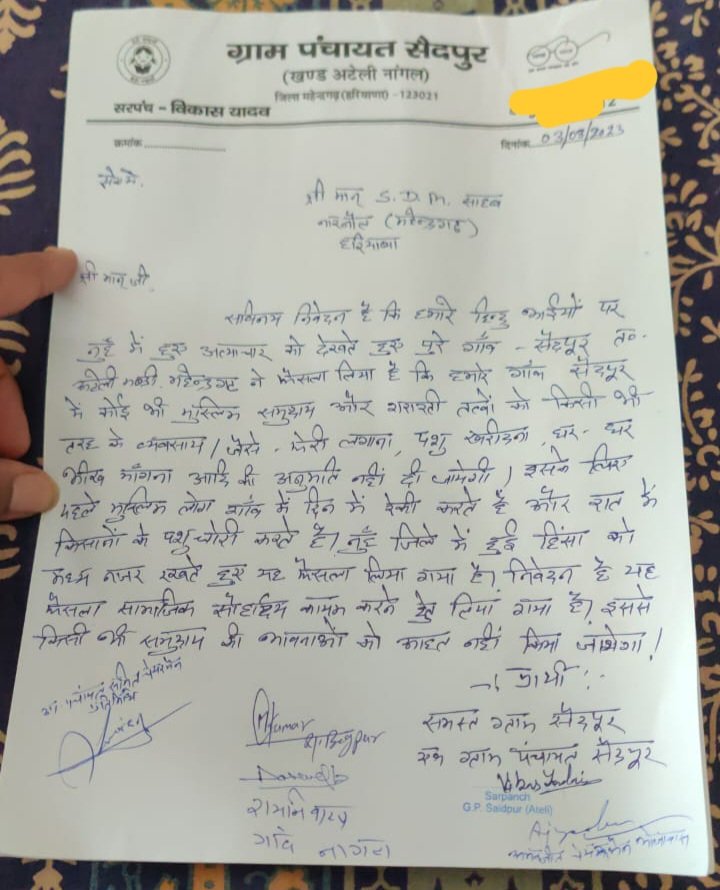 ग्राम पंचायत सैदपुर
(खण्ड अटेली नांगल)
जिला महेन्द्रगढ़ (हरियाणा) -123021
सरपंच - विकास यादव
क्रमांक
दिनांक 03/08/2023
सेवा में,
श्री मान् S.D.M. साहब
नारनौल (महेन्द्रगढ़)
हरियाणा
श्री मान् जी,
सविनय निवेदन है कि हमारे हिन्दु भाईयों पर
नुहँ में हुए अत्याचार को देखते हुए पुरे गाँव - सैदपुर त॰
अटेली मण्डी, महेन्द्रगढ़ ने फैसला लिया है कि हमारे गाँव सैदपुर
में कोई भी मुस्लिम समुदाय और शरारती तत्वों को किसी भी
तरह के व्यवसाय / जैसे - फेरी लगाना, पशु खरीदना, घर-घर
भीख माँगना आदि की अनुमति नहीं दी जायेगी / इसके लिए
पहले मुस्लिम लोग गाँव में दिन में रेकी करते हैं और रात में
किसानों के पशु चोरी करते हैं। नुहँ जिले में हुई हिंसा को
मध्य नजर रखते हुए यह फैसला लिया गया है। निवेदन है यह
फैसला सामाजिक सौहार्द्रय कायम करने हेतु लिया गया है। इससे
किसी भी समुदाय की भावनाओं को आहत नहीं किया जायेगा!
प्रार्थी :-
समस्त ग्राम सैदपुर
एवं ग्राम पंचायत सैदपुर
पंचायत समिति चेयरमैन
प्रतिनिधि
Sarpanch
G.P. Saidpur (Ateli)
रामनिवास
गाँव नांगल
चेयरमैन